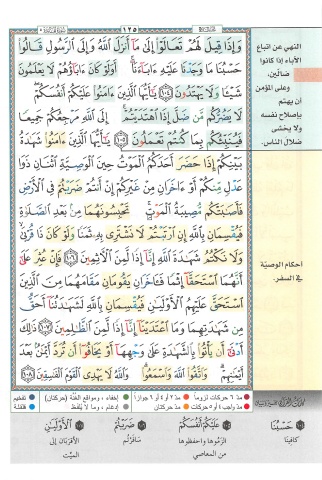 ١٢٥
وَإِذَا قِيلَ لَهُمْ تَعَالَوْا۟ إِلَىٰ مَآ أَنزَلَ ٱللَّهُ وَإِلَى ٱلرَّسُولِ قَالُوا۟
حَسْبُنَا مَا وَجَدْنَا عَلَيْهِ ءَابَآءَنَآ ۚ أَوَلَوْ كَانَ ءَابَآؤُهُمْ لَا يَعْلَمُونَ
شَيْـًٔا وَلَا يَهْتَدُونَ ١٠٤ يَـٰٓأَيُّهَا ٱلَّذِينَ ءَامَنُوا۟ عَلَيْكُمْ أَنفُسَكُمْ ۖ
لَا يَضُرُّكُم مَّن ضَلَّ إِذَا ٱهْتَدَيْتُمْ ۚ إِلَى ٱللَّهِ مَرْجِعُكُمْ جَمِيعًا
فَيُنَبِّئُكُم بِمَا كُنتُمْ تَعْمَلُونَ ١٠٥ يَـٰٓأَيُّهَا ٱلَّذِينَ ءَامَنُوا۟ شَهَـٰدَةُ
بَيْنِكُمْ إِذَا حَضَرَ أَحَدَكُمُ ٱلْمَوْتُ حِينَ ٱلْوَصِيَّةِ ٱثْنَانِ ذَوَا
عَدْلٍ مِّنكُمْ أَوْ ءَاخَرَانِ مِنْ غَيْرِكُمْ إِنْ أَنتُمْ ضَرَبْتُمْ فِى ٱلْأَرْضِ
فَأَصَـٰبَتْكُم مُّصِيبَةُ ٱلْمَوْتِ ۚ تَحْبِسُونَهُمَا مِنۢ بَعْدِ ٱلصَّلَوٰةِ
فَيُقْسِمَانِ بِٱللَّهِ إِنِ ٱرْتَبْتُمْ لَا نَشْتَرِى بِهِۦ ثَمَنًا وَلَوْ كَانَ ذَا قُرْبَىٰ ۙ
وَلَا نَكْتُمُ شَهَـٰدَةَ ٱللَّهِ إِنَّآ إِذًا لَّمِنَ ٱلْـَٔاثِمِينَ ١٠٦ فَإِنْ عُثِرَ عَلَىٰٓ
أَنَّهُمَا ٱسْتَحَقَّآ إِثْمًا فَـَٔاخَرَانِ يَقُومَانِ مَقَامَهُمَا مِنَ ٱلَّذِينَ
ٱسْتَحَقَّ عَلَيْهِمُ ٱلْأَوْلَيَـٰنِ فَيُقْسِمَانِ بِٱللَّهِ لَشَهَـٰدَتُنَآ أَحَقُّ
مِن شَهَـٰدَتِهِمَا وَمَا ٱعْتَدَيْنَآ إِنَّآ إِذًا لَّمِنَ ٱلظَّـٰلِمِينَ ١٠٧ ذَٰلِكَ
أَدْنَىٰٓ أَن يَأْتُوا۟ بِٱلشَّهَـٰدَةِ عَلَىٰ وَجْهِهَآ أَوْ يَخَافُوٓا۟ أَن تُرَدَّ أَيْمَـٰنٌۢ بَعْدَ
أَيْمَـٰنِهِمْ ۗ وَٱتَّقُوا۟ ٱللَّهَ وَٱسْمَعُوا۟ ۗ وَٱللَّهُ لَا يَهْدِى ٱلْقَوْمَ ٱلْفَـٰسِقِينَ ١٠٨
النهي عن اتباع
الآباء إذا كانوا
ضالّين،
وعلى المؤمن
أن يهتم
بإصلاح نفسه
ولا يخشى
ضلال الناس.
أحكام الوصيّة
في السفر.
مدّ ٦ حركات لزوماً مدّ ٢ أو ٤ أو ٦ جوازاً إخفاء، ومواقع الغُنَّة (حركتان) تفخيم
مدّ واجب ٤ أو ٥ حركات مدّ حركتان إدغام، وما لا يُلفَظ قلقلة
حَسْبُنَا عَلَيْكُمْ أَنفُسَكُمْ ضَرَبْتُمْ ٱلْأَوْلَيَـٰنِ
كافينا الزموها واحفظوها سافرتُم الأقربان إلى
من المعاصي الميّت